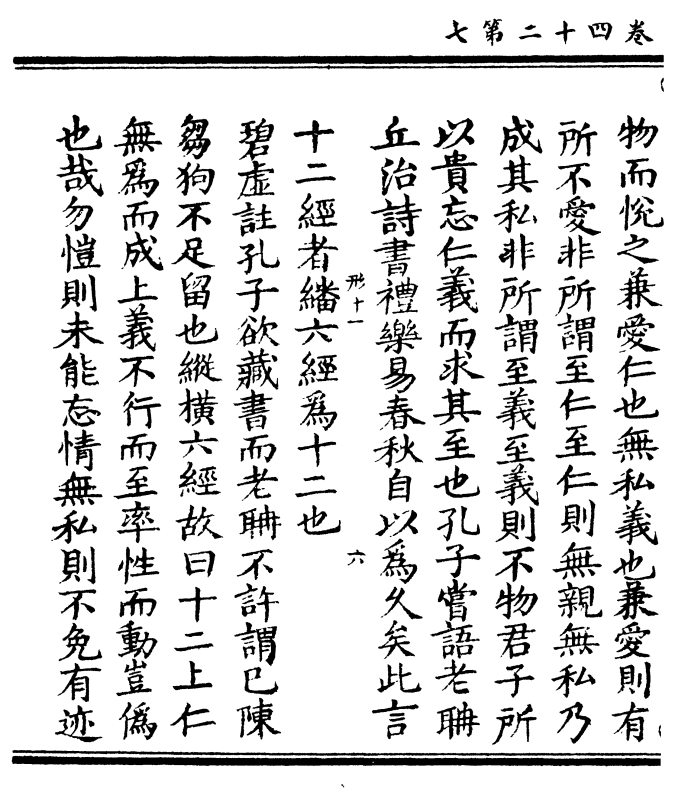 卷四十二第七
物而恱之兼愛仁也無私義也兼愛則有
所不愛非所謂至仁至仁則無親無私乃
成其私非所謂至義至義則不物君子所
以貴忘仁義而求其至也孔子嘗語老聃
丘治詩書禮樂易春秋自以爲久矣此言
形十一
六
十二經者繙六經爲十二也
碧虛註孔子欲藏書而老聃不許謂已陳
芻狗不足留也縱橫六經故曰十二上仁
無爲而成上義不行而至率性而動豈僞
也哉勿愷則未能忘情無私則不免有迹